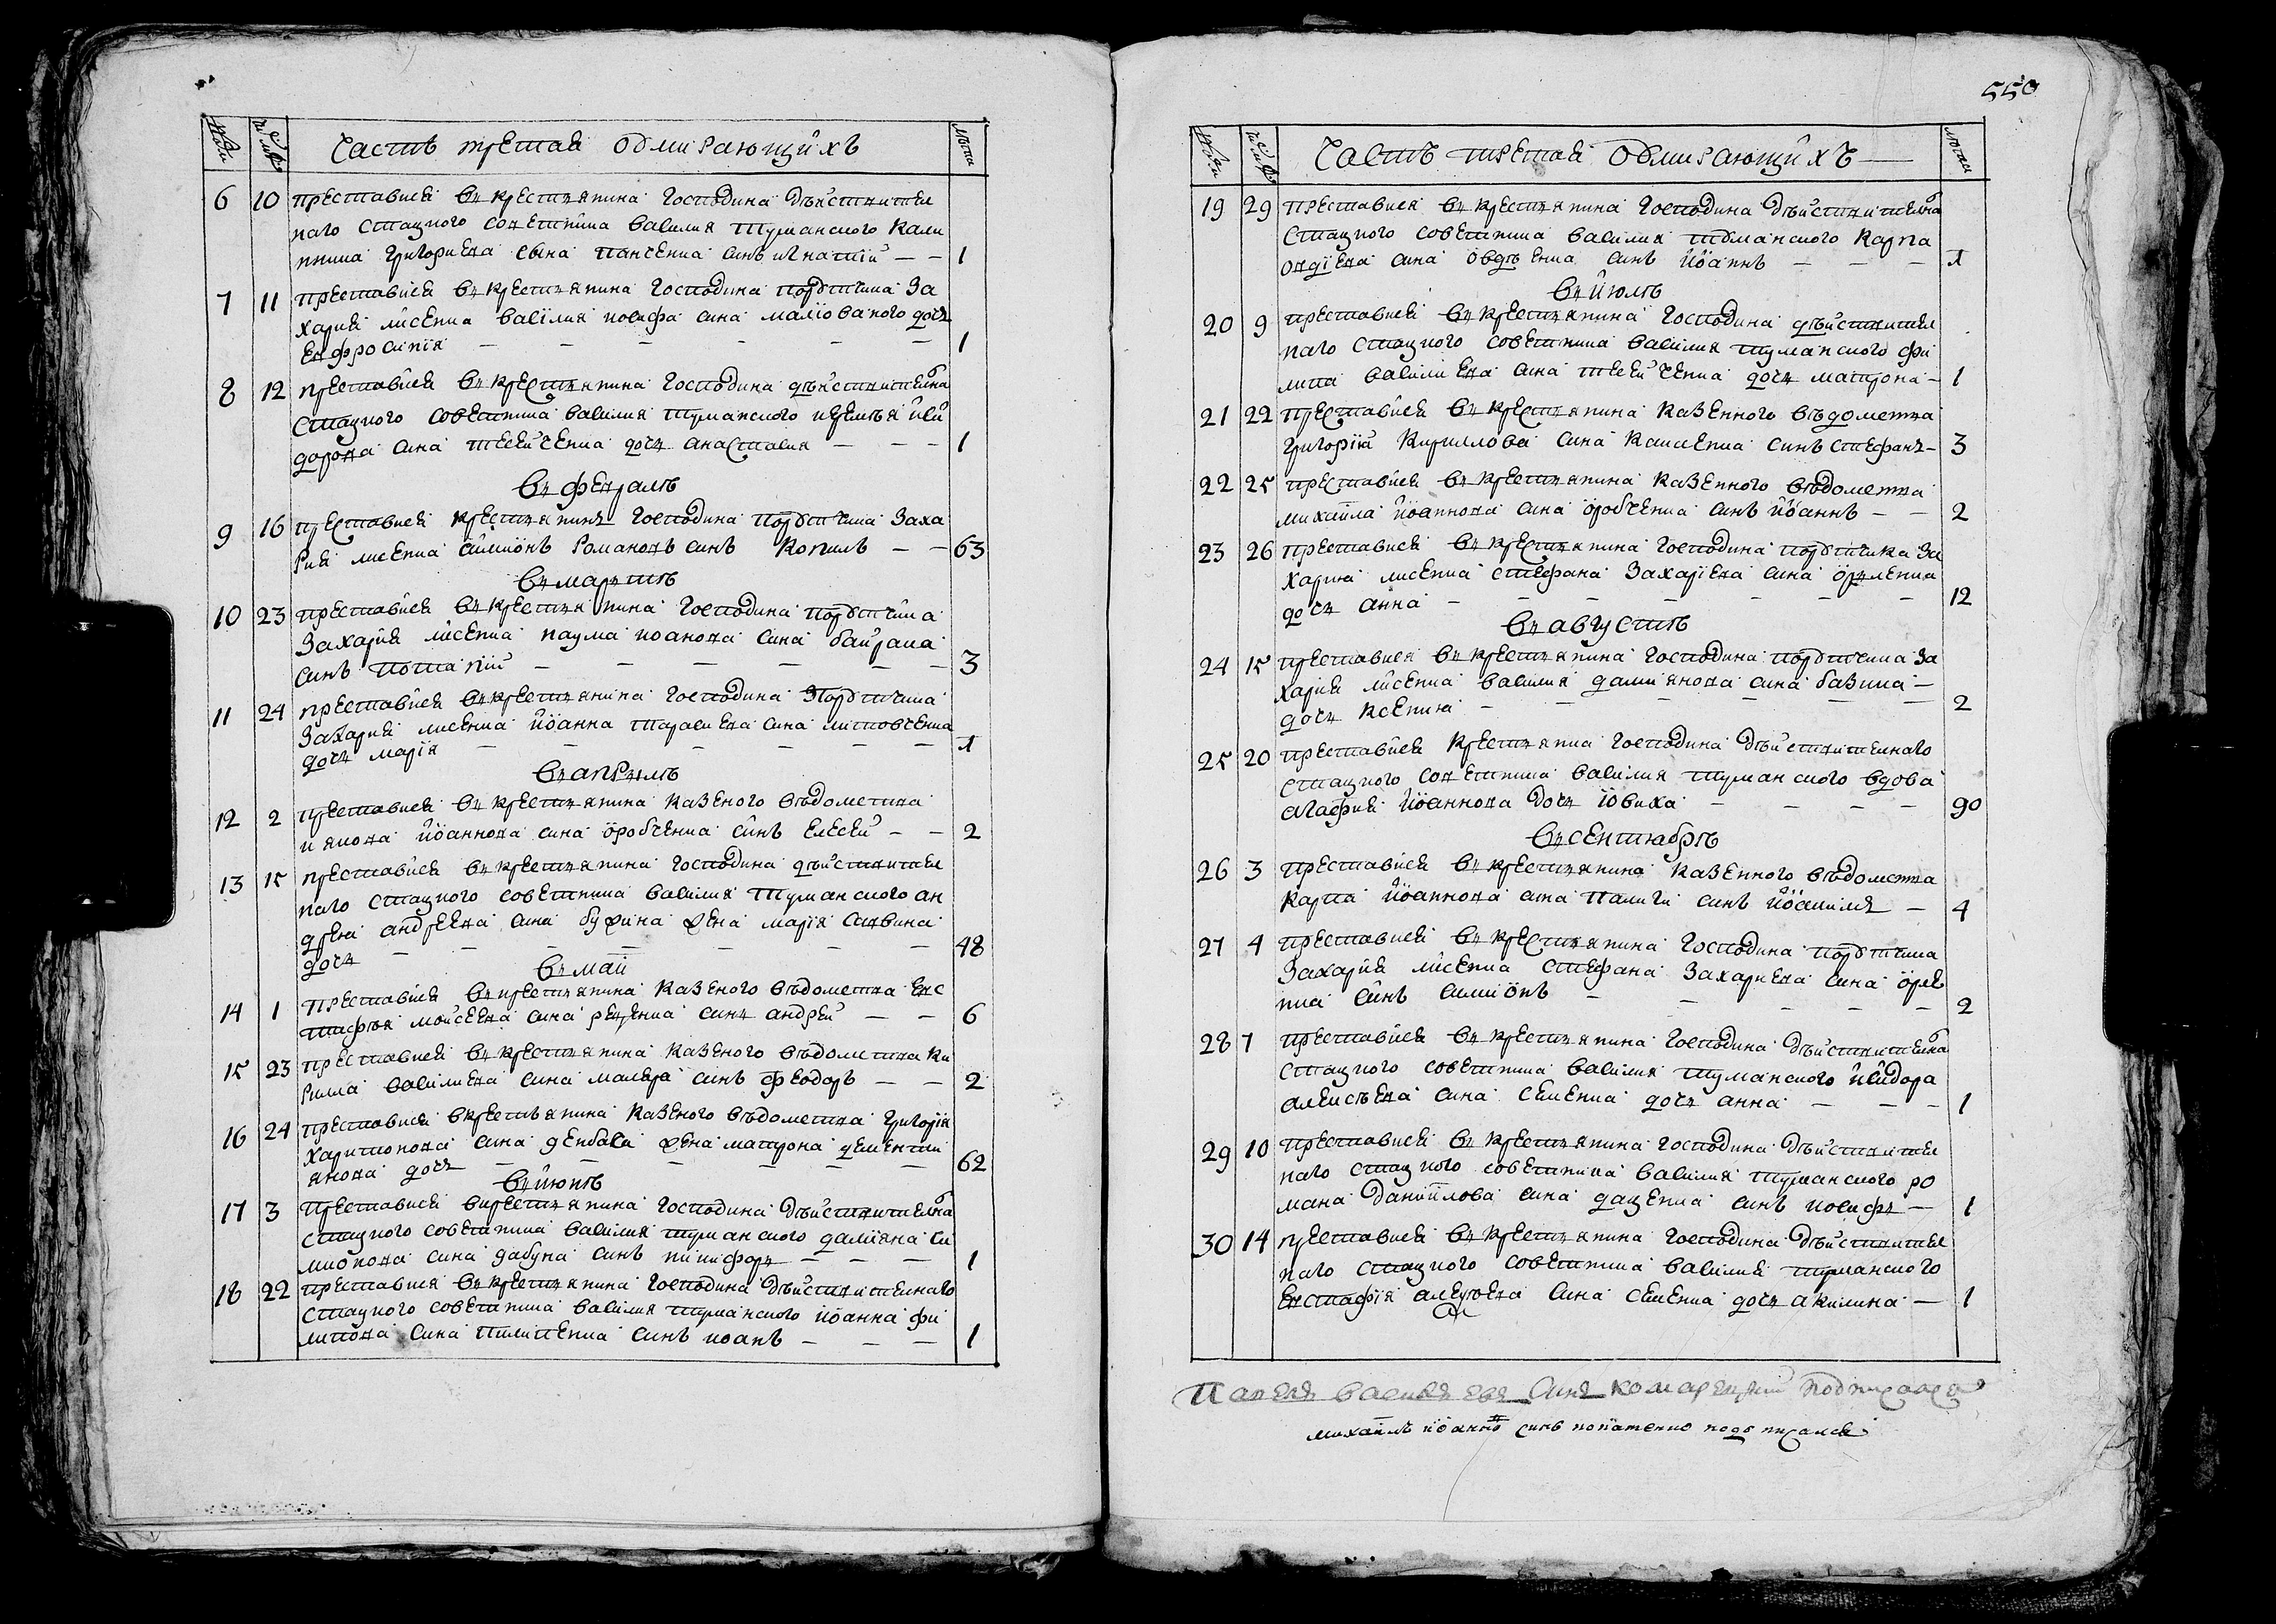 Часть третая обмирающихъ
лѣта
6 10 преставися въ крестьянина господина дѣиствител
наго стацкого советника василия туманского кали
нника григориева сына панченка синъ игнатiй — — 1
7 11 преставися въ крестьянина господина порутчика За
хария лисенка василия иосифа сина малiованого дочь
евфросинiя — — — — — — 1
8 12 преставися въ крестьянина господина дѣиствителна
стацкого советника василия туманского иси
дорова сина дочь анастасия — — — 1
въ февралѣ
9 16 преставися крестьянинъ господина порутчика Заха
рия лисенка симиiонъ романовъ синъ Копилъ — — 63
въ мартѣ
10 23 преставися въ крестьянина господина порутчика
Захария лисенка наума иоанова сина баирака
синъ потапiй — — — — — — 3
11 24 преставися въ крестьянина господина порутчика
Захария лисенка iоанна тарасиева сина литовченка
дочь марiя — — — — — — 1
въ апрѣлѣ
12 2 преставися въ крестьянина казеного вѣдомства
iоаннова сина оробченка синъ елесей — — 2
13 15 преставися въ крестьянина господина дѣиствител
наго стацкого советника василия туманского ан
дрея андреева сина жена марiя савина
дочь — — — — — — 48
въ маи
14 1 преставися въ крестьянина казеного вѣдомства евс
тафия моисеева сина синъ андрей — — 6
15 23 преставися въ крестьянина казеного вѣдомства ки
рилла василиева сина маляра синъ феодоръ — — 2
16 24 преставися вкрестьянина казеного вѣдомства григорiя
харитонова сина жена матрона дементи
янова дочь — — — — — — 62
въ июнѣ
17 3 преставися вкрестьянина господина дѣиствителна
стацкого советника василия туманского дамияна си
мионова сина дабука синъ никифоръ — — — 1
18 22 преставися въ крестьянина господина дѣиствителнаго
стацкого советника василия туманского iоанна фи
липова сина пилипенка синъ иоанъ — — — 1
550
Часть третая обмирающихъ —
лѣта
19 29 преставися въ крестьянина господина дѣиствителна
стацкого советника василия туманского карпа
авдiева сина овдѣенка синъ iоаннъ — — — 1
въ июлѣ
20 9 преставися въ крестьянина господина дѣиствител
наго стацкого советника василия туманского фи
липа василиева сина дочь матрона — 1
21 22 преставися въ крестьянина казенного вѣдомства
григорiя кирилова сина синъ стефанъ — 3
22 25 преставися въ крестьянина казенного вѣдомства
михаила iоаннова сина оробченка синъ iоаннъ — — 2
23 26 преставися въ крестьянина господина порутчика За
хария лисенка стефана Захарiева сина орленка
дочь анна — — — — — — 12
въ августѣ
24 15 преставися въ крестьянина господина порутчика За
хария лисенка василия дамиянова сина базика —
дочь ксения — — — — — 2
25 20 преставися крестьянка господина дѣиствителнаго
стацкого советника василия туманского вдова
агафия iоаннова дочь iовиха — — — — 90
въ сентябрѣ
26 3 преставися въ крестьянина казенного вѣдомства
карпа iоаннова сина синъ iоакимъ — 4
27 4 преставися въ крестьянина господина порутчика
Захария лисенка стефана Захариева сина орле
нка синъ симиiонъ — — — — — 2
28 7 преставися въ крестьянина господина дѣиствителна
стацкого советника василия туманского исидора
алексѣева сина семенка дочь анна — — — 1
29 10 преставися въ крестьянина господина дѣиствител
наго стацкого советника василия туманского ро
мана данiилова сина даценка синъ иосифъ — 1
30 14 преставися въ крестьянина господина дѣиствител
наго стацкого советника василия туманского
евстафiя алексѣева сина семенка дочь акилина — 1
Павелъ василиевъ синъ комарецкий подписался
михаилъ iоанновъ синъ подписался